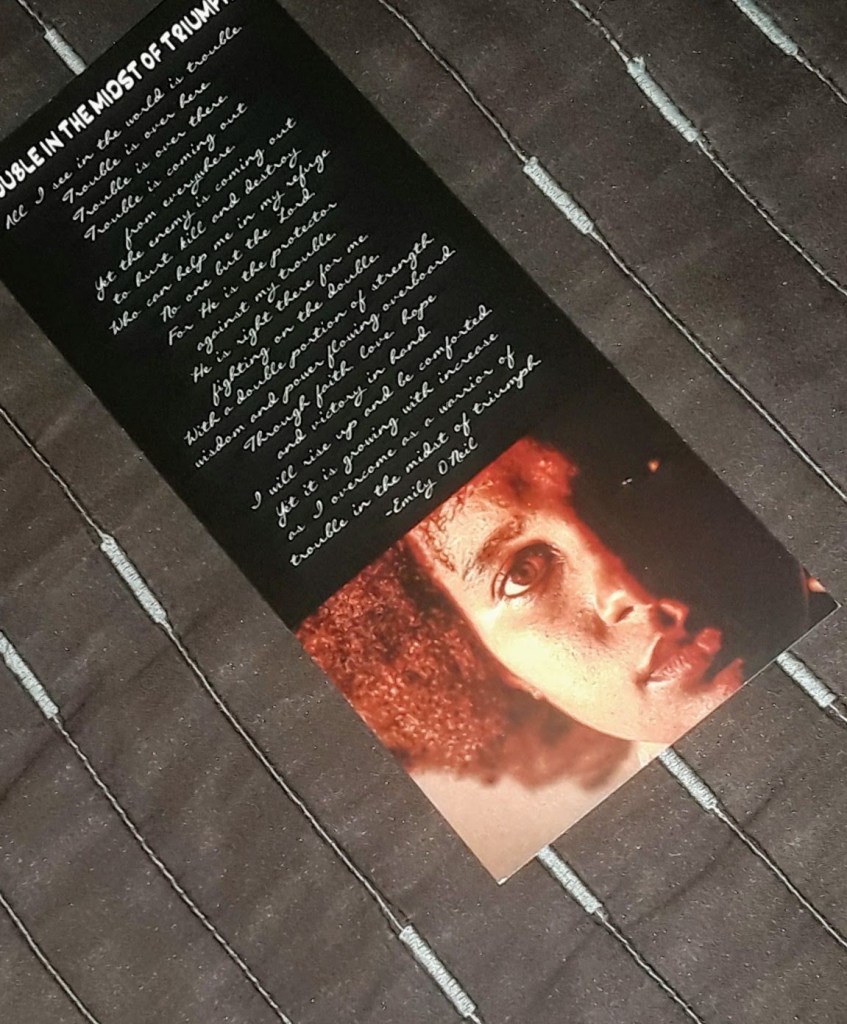 OUBLE IN THE MIDST OF TRIUMPH
All I see in the world is trouble
Trouble is over here
Trouble is over there
Trouble is coming out
from everywhere
Yet the enemy is coming out
to hurt kill and destroy
Who can help me in my refuge
No one but the Lord
For He is the protector
against my trouble
He is right there for me
fighting on the double
With a double portion of strength
wisdom and power flowing overboard
Through faith love hope
and victory in hand
I will rise up and be comforted
Yet it is growing with increase
as I overcome as a warrior of
trouble in the midst of triumph
-Emily O'Neil